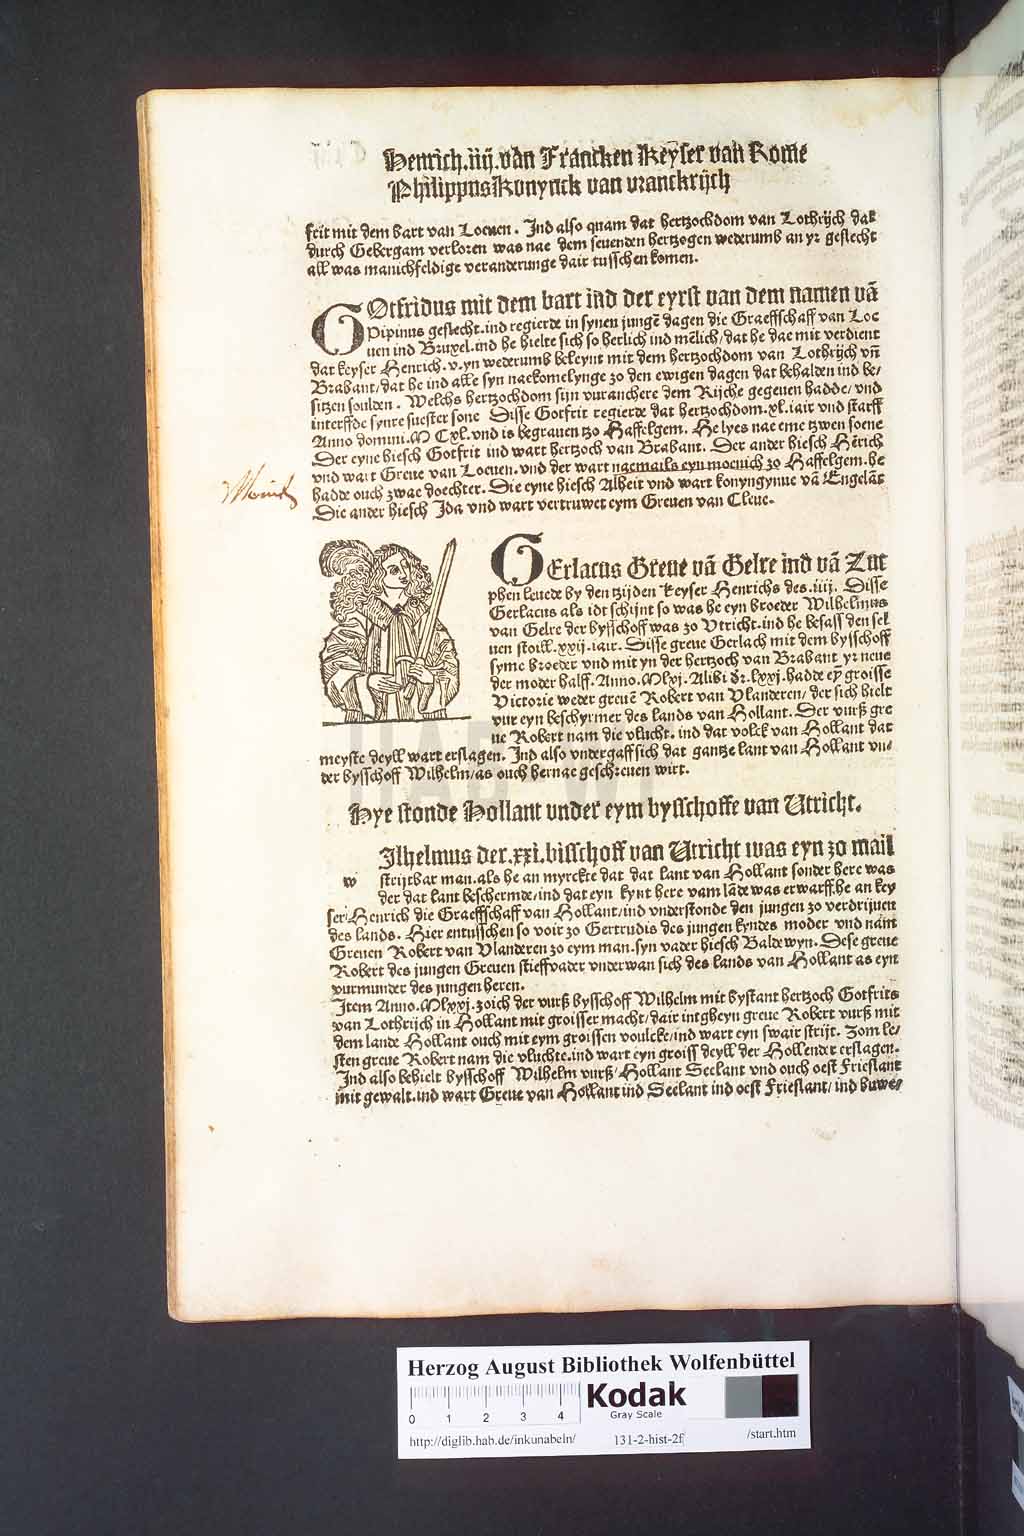 Henrich.iiij.van Francken Keyser van Rome
Philippus Konynck van vranckrijch
frit mit dem bart van Loeuen. Ind also quam dat hertzochdom van Lothrijch dat
durch Gebergam verloren was nae dem seuenden hertzogen wederumb an yr geslecht
all was manichfeldige veranderunge dair tusschen komen.
GOtfridus mit dem bart ind der eyrst van dem namen vā
Pipinus geslecht.ind regierde in synen jungē dagen die Graeffschaff van Loe
uen ind Bruxel.ind he hielte sich so herlich ind mēlich/dat he dae mit verdient
dat keyser Henrich.v.yn wederumb beleynt mit dem hertzochdom van Lothrijch vn̄
Brabant/dat he ind alle syn naekomelynge zo den ewigen dagen dat behalden ind be/
sitzen soulden. Welchs hertzochdom sijn vuranchere dem Rijche gegeuen hadde/ vnd
interffde synre suester sone Disse Gotfrit regierde dat hertzochdom.xl.iair vnd starff
Anno domini.M CXl.vnd is begrauen tzo Haffelgem. He lyes nae eme tzwen soene
Der eyne hiesch Gotfrit ind wart hertzoch van Brabant. Der ander hiesch Hērich
vnd wart Greue van Loeuen.vnd der wart nacmails eyn moenich zo Haffelgem.he
hadde ouch zwae doechter. Die eyne hiesch Alheit vnd wart konyngynne vā Engelāt
Die ander hiesch Ida vnd wart vertruwet eym Greuen van Cleue.
GErlacus Greue vā Gelre ind vā Zut
phen leuede by den tzijden keyser Henrichs des.iiij. Disse
Gerlacus als idt schijnt so was he eyn broeder Wilhelmus
van Gelre der bysschoff was zo Vtricht.ind he besass den sel
uen stoill.xxij.iair. Disse greue Gerlach mit dem bysschoff
syme broeder vnd mit yn der hertzoch van Brabant yr neue
der moder halff. Anno.Mlxj. Alibi dr.lxxj.hadde ey̅ groisse
Victorie weder greuē Robert van Vlanderen/ der sich hielt
vur eyn beschyrmer des lands van Hollant. Der vurß gre
ue Robert nam die vlucht. ind dat volck van Hollant dat
meyste deyll wart erslagen. Ind also vndergaff sich dat gantze lant van Hollant vn/
der bysschoff Wilhelm/as ouch hernae geschreuen wirt.
Hye stonde Hollant under eym bysschoffe van Utricht.
w Ilhelmus der.xxi.bisschoff van Utricht was eyn zo mail
strijtbar man.als he an myrckte dat dat lant van Hollant sonder here was
der dat lant beschermde/ind dat eyn kynt here vam lāde was erwarff.he an key
ser Henrich die Graeffschaff van Hollant/ind vnderstonde den jungen zo verdrijuen
des lands. Hier entusschen so voir zo Gertrudis des jungen kyndes moder vnd nam
Greuen Robert van Vlanderen zo eym man.syn vader hiesch Baldewyn. Dese greue
Robert des jungen Greuen stieffvader vnderwan sich des lands van Hollant as eyn
vurmunder des jungen heren.
Item Anno.Mlxxj.zoich der vurß bysschoff Wilhelm mit bystant hertzoch Gotfrits
van Lothrijch in Hollant mit groisser macht/dair intgheyn greue Robert vurß mit
dem lande Hollant ouch mit eym groissen voulcke/ind wart eyn swair strijt. Zom le/
sten greue Robert nam die vluchte.ind wart eyn groiss deyll der Hollender erslagen.
Ind also behielt bysschoff Wilhelm vurß/Hollant Seelant vnd ouch oest Frieslant
mit gewalt.ind wart Greue van Hollant ind Seelant ind oest Frieslant/ ind buwe/
HAB WF
Herzog August Bibliothek Wolfenbüttel
0 1 2 3 4
Kodak
Gray Scale
http://diglib.hab.de/inkunabeln/ 131-2-hist-2f /start.htm